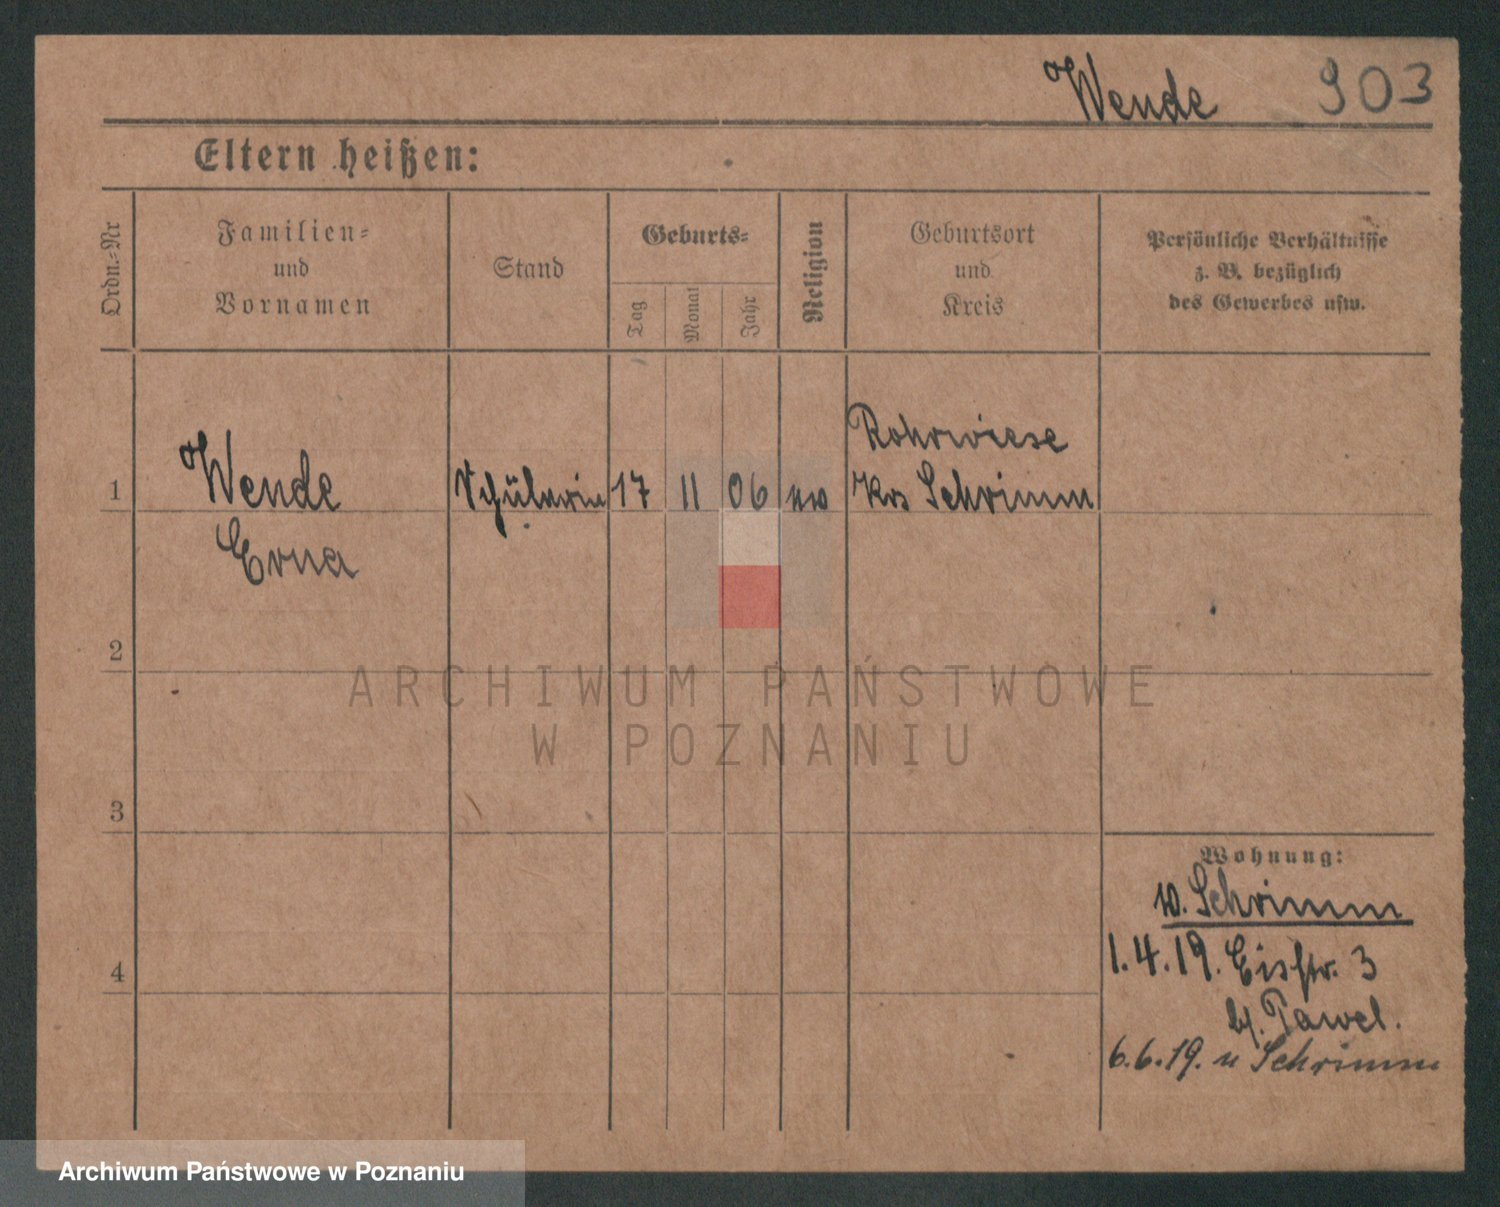 Wende 903
Eltern heißen:
Ordn.-Nr
Familien-
und
Vornamen
Stand
Geburts-
Tag
Monat
Jahr
Religion
Geburtsort
und
Kreis
Persönliche Verhältnisse
z. B. bezüglich
des Gewerbes usw.
Rohrwiese
1 Wende Schülerin 17 11 06 Krs Schrimm
Erna
2
ARCHIWUM PAŃSTWOWE
W POZNANIU
3
Wohnung:
w. Schrimm
1.4.19. Eisstr. 3
4
b/. Pawel.
6.6.19. n Schrimm
Archiwum Państwowe w Poznaniu